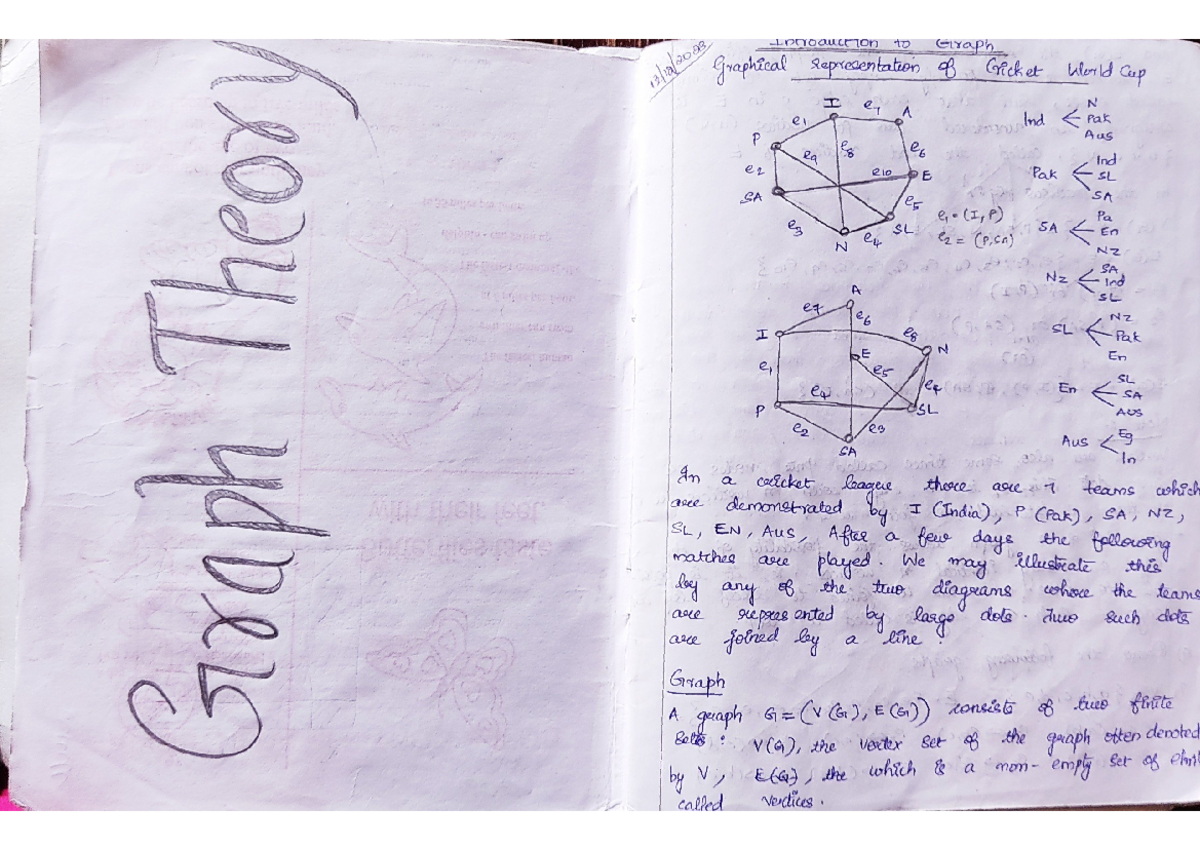 Graph Theory
13/12/2023
Introduction to Graph
Graphical representation of Cricket World Cup
I
e7
A
e1
P
e9
e8
e6
e2
e10
E
SA
e5
e3
SL
N
e4
e1 = (I, P)
e2 = (P, SA)
Ind < N
Pak
Aus
Pak < Ind
SL
SA
SA < Pa
En
NZ
NZ < SA
Ind
SL
SL < NZ
Pak
En
En < SL
SA
AUS
Aus < Eg
In
A
e7
e6
I
e8
N
E
e1
e5
e4
e4
P
SL
e2
e3
SA
In a cricket league there are 7 teams which
are demonstrated by I (India), P (Pak), SA, NZ,
SL, EN, Aus, After a few days the following
matches are played. We may illustrate this
by any of the two diagrams where the teams
are represented by large dots. Two such dots
are joined by a line.
Graph
A graph G = (V(G), E(G)) consists of two finite
sets: V(G), the vertex set of the graph often denoted
by V, E(G), the which is a non-empty set of
called vertices.